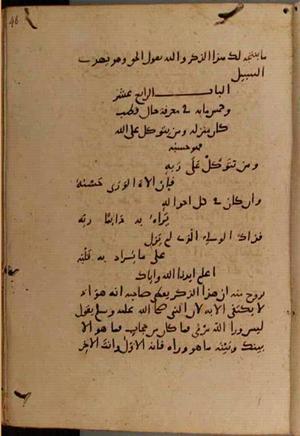 ما ينتجه لك هذا الذكر والله يقول الحق وهو يهدي
السبيل
الباب الرابع عشر
وخمس مايه في معرفة حال قطب
كان منزله ومن يتوكل على الله
فهو حسبه
ومن يتوكل على ربه
فإن الاه الورى حسبه
وان كان في كل احواله
يراه به دائما ربه
فذاك الولي الذي لم يزل
على ما يراد به قلبه
اعلم ايدنا الله واياك
بروح منه ان هذا الذكر يعطي صاحبه انه هو لا
لا يكتفى الا به لان النبي صلى الله عليه وسلم يقول
ليس ورا الله مرمى فما كل من حجاب فما هو الا
بينك وبينه ما هو وراه فانه الاول وانت الاخر